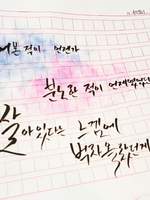 어본 적이 언젠가
분노한 적이 언제였던가
살아있다는 느낌에
벅차올랐던게